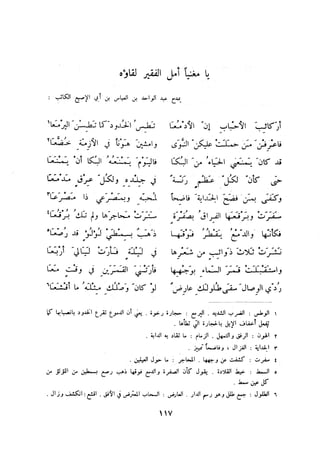 يا مغنياً أمل الفقير لقاؤه
يمدح عبد الواحد بن العباس بن أبي الإصبع الكاتب :
أَرَكائِبَ الأَحْبابِ إنّ الأَدْمُعَا تَطِسُ الخُدُودَ كما تَطِسْنَ اليَرْمَعَا ١
فاعْرِفْنَ مَن حَمَلَتْ عَلَيكُنّ النّوَى وَامْشِينَ هَوْناً في الأزِمّةِ خُضَّعَا ٢
قد كانَ يَمْنَعُني الحَيَاءُ منَ البُكَا فاليَوْمَ يَمْنَعُهُ البُكَا أنْ يَمْنَعَا
حتى كأنّ لكُلّ عَظْمٍ رَنّةً في جِلْدِهِ ولكُلّ عِرْقٍ مَدْمَعَا
وكَفَى بمَن فَضَحَ الجَدايَةَ فاضِحاً لمُحِبّهِ وبمَصْرَعي ذا مَصْرَعَا ٣
سَفَرَتْ وبَرْقَعَها الفِراقُ بصُفْرَةٍ سَتَرَتْ مَحاجِرَها ولم تَكُ بُرْقُعَا ٤
فكأنّها والدّمْعُ يَقْطُرُ فَوْقَها ذَهَبٌ بسِمْطَيْ لُؤلُؤٍ قد رُصّعَا ٥
نَشَرَتْ ثَلاثَ ذَوائِبٍ من شَعْرِها في لَيْلَةٍ فَأرَتْ لَيَاليَ أرْبَعَا
واستَقْبَلَتْ قَمَرَ السّماءِ بوَجْهِها فأرَتْنيَ القَمَرَينِ في وَقْتٍ مَعَا
رُدّي الوِصالَ سقَى طُلولَكِ عارِضٌ لوْ كانَ وَصْلُكِ مِثْلَهُ ما أقْشَعَا ٦
١ الوطس : الضرب الشديد . اليرمع : حجارة رخوة . يعني أن الدموع تقرع الخدود بانصبابها كما
تفعل أخفاف الإبل بالحجارة التي تطأها .
٢ الهون : الرفق والتمهل . الزمام : ما تقاد به الدابة .
٣ الجداية : الغزال ، وفاضحاً تمييز .
٤ سفرت : كشفت عن وجهها . المحاجر : ما حول العينين .
٥ السمط : خيط القلادة . يقول كأن الصفرة والدمع فوقها ذهب رصع بسمطين من اللؤلؤ من
كل عين سمط .
٦ الطلول : جمع طلل وهو رسم الدار . العارض : السحاب المعترض في الأفق . أقشع : انكشف وزال .
١١٧